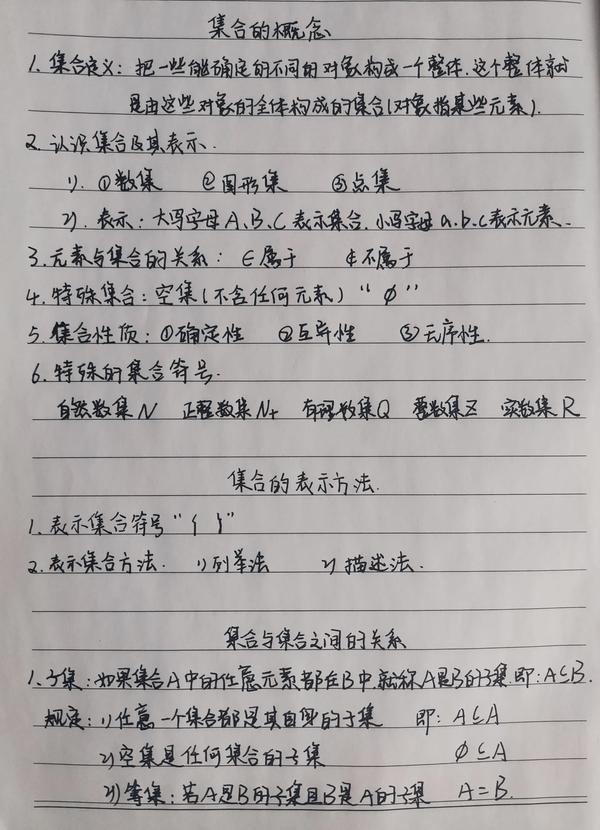 集合的概念
1. 集合定义：把一些能确定的不同的对象构成一个整体.这个整体就
是由这些对象的全体构成的集合(对象指某些元素).
2. 认识集合及其表示.
1). ①数集 ②图形集 ③点集
2). 表示：大写字母A、B、C表示集合. 小写字母a、b、c表示元素.
3. 元素与集合的关系：∈属于 ∉不属于
4. 特殊集合：空集(不含任何元素) “∅”
5. 集合性质：①确定性 ②互异性 ③无序性.
6. 特殊的集合符号.
自然数集N 正整数集N+ 有理数集Q 整数集Z 实数集R
集合的表示方法.
1. 表示集合符号“{ }”
2. 表示集合方法. 1)列举法 2)描述法.
集合与集合之间的关系
1. 子集：如果集合A中的任意元素都在B中.就称A是B的子集.即：A⊆B.
规定：1)任意一个集合都是其自身的子集 即：A⊆A
2)空集是任何集合的子集 ∅⊆A
3)等集：若A是B的子集且B是A的子集 A=B.